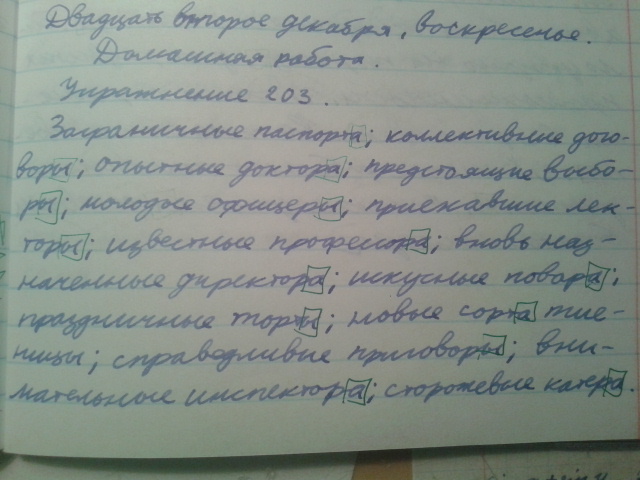 Двадцать второе декабря, воскресенье.
Домашняя работа.
Упражнение 203.
Заграничные паспорта; коллективные дого-
воры; опытные доктора; предстоящие выбо-
ры; молодые офицеры; приехавшие лек-
торы; известные профессора; вновь наз-
наченные директора; искусные повара;
праздничные торты; новые сорта пше-
ницы; справедливые приговоры; вни-
мательные инспектора; сторожевые катера.